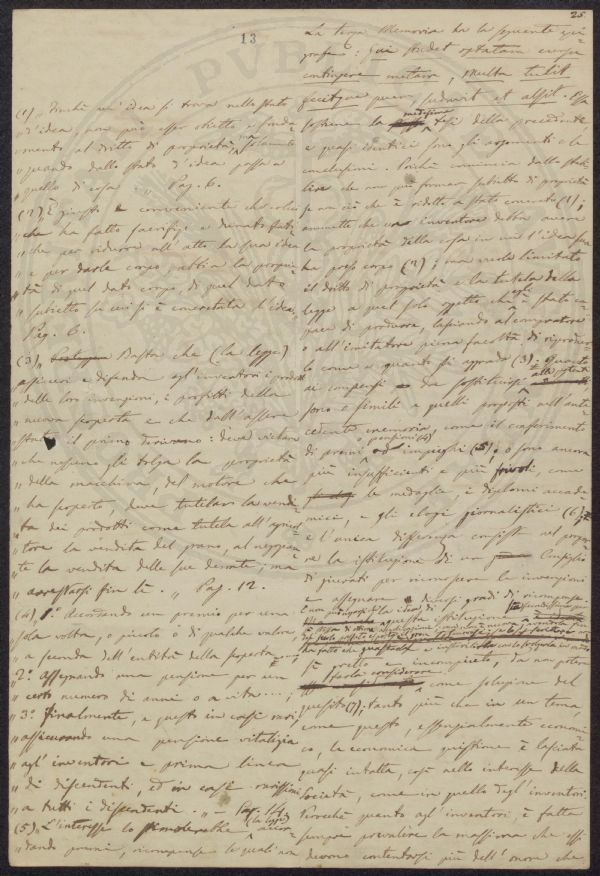 25.
13
PVBLI
(1) „ Finchè un' idea si trova nello stato
„ d'idea, non può esser obietto e fonda-
„ mento al dritto di proprietà, ma solamente
„ quando dallo stato d'idea passa a
„ quello di cosa. „ Pag. 6.
(2) „ È giusto e conveniente che colui
„ che ha fatto sacrifizi e durato fati-
„ che per ridurre all'atto la sua idea
„ e per darle corpo, s'abbia la proprie-
„ tà di quel dato corpo, di quel dato
„ subietto su cui si è concretata l'idea.
Pag. 6.
(3) „ Basta che (la legge)
„ assicuri e difenda agl'inventori i prodotti
„ delle loro invenzioni, i profitti della
„ nuova scoperta e che dall'assere
„ il primo derivano: deve vietare
„ che nessuno gli tolga la proprietà
„ della macchina, del motore che
„ ha scoperto, deve tutelare la vendi-
„ ta dei prodotti come tutela all'agricol-
„ tore la vendita del grano, al negozian-
„ te la vendita delle sue derrate; ma
„ arrestarsi fin lì. „ Pag. 12.
(4) „ 1º Accordando un premio per una
„ sola volta, o piccolo o di qualche valore,
„ a seconda dell'entità della scoperta
„ 2º assegnando una pensione per un
„ certo numero di anni o a vita ...;
„ 3º finalmente, e questo in casi rari,
„ assicurando una pensione vitalizia
„ agl'inventori e prima linea
„ di discendenti, ed in casi rarissimi
„ a tutti i discendenti. „ — Pag. 14.
(5) „ L'interesse lo stimolerebbe (la legge) accor-
„ dando premi, ricompense le quali non
La terza Memoria ha la seguente epi-
grafe: Qui studet optatam cursu
contingere metam, Multa tulit
fecitque puer, sudavit et alsit. Essa
sostiene la medesima tesi della precedente
e quasi identici sono gli argomenti e le
conclusioni. Poichè comincia dallo stabi-
lire che non può formar subietto di proprietà
se non ciò che è ridotto a stato concreto (1);
ammette che un inventore debba avere
la proprietà della cosa in cui l'idea sua
ha preso corpo (2); ma vuole limitato
il dritto di proprietà e la tutela della
legge a quel solo oggetto ch'egli è stato ca-
pace di produrre, lasciando al compratore
o all'imitatore piena facoltà di riprodur-
lo come e quanto gli aggrada (3). Quanto
ai compensi da sostituirsi alla privati-
sono i simili a quelli proposti nell'ante-
cedente memoria, come il conferimento
di premi, o pensioni (4) od impieghi (5); o sono ancora
più insufficienti e più frivoli, come
le medaglie, i diplomi accade-
mici, e gli elogi giornalistici (6);
e l'unica differenza consiste nel propor-
re la istituzione di un Consiglio
di giurati per riconoscere le invenzioni
e assegnare i diversi gradi di ricompensa.
sì gretto e incompleto, da non potersi
farlo considerare, come soluzione del
quesito (7), tanto più che in un tema
come questo, essenzialmente economi-
co, la economica quistione è lasciata
quasi intatta, così nello interesse della
Società, come in quello degl'inventori.
Perochè quanto agl'inventori, è fatta
sempre prevalere la massima che essi
devono contentarsi più dell'onore che